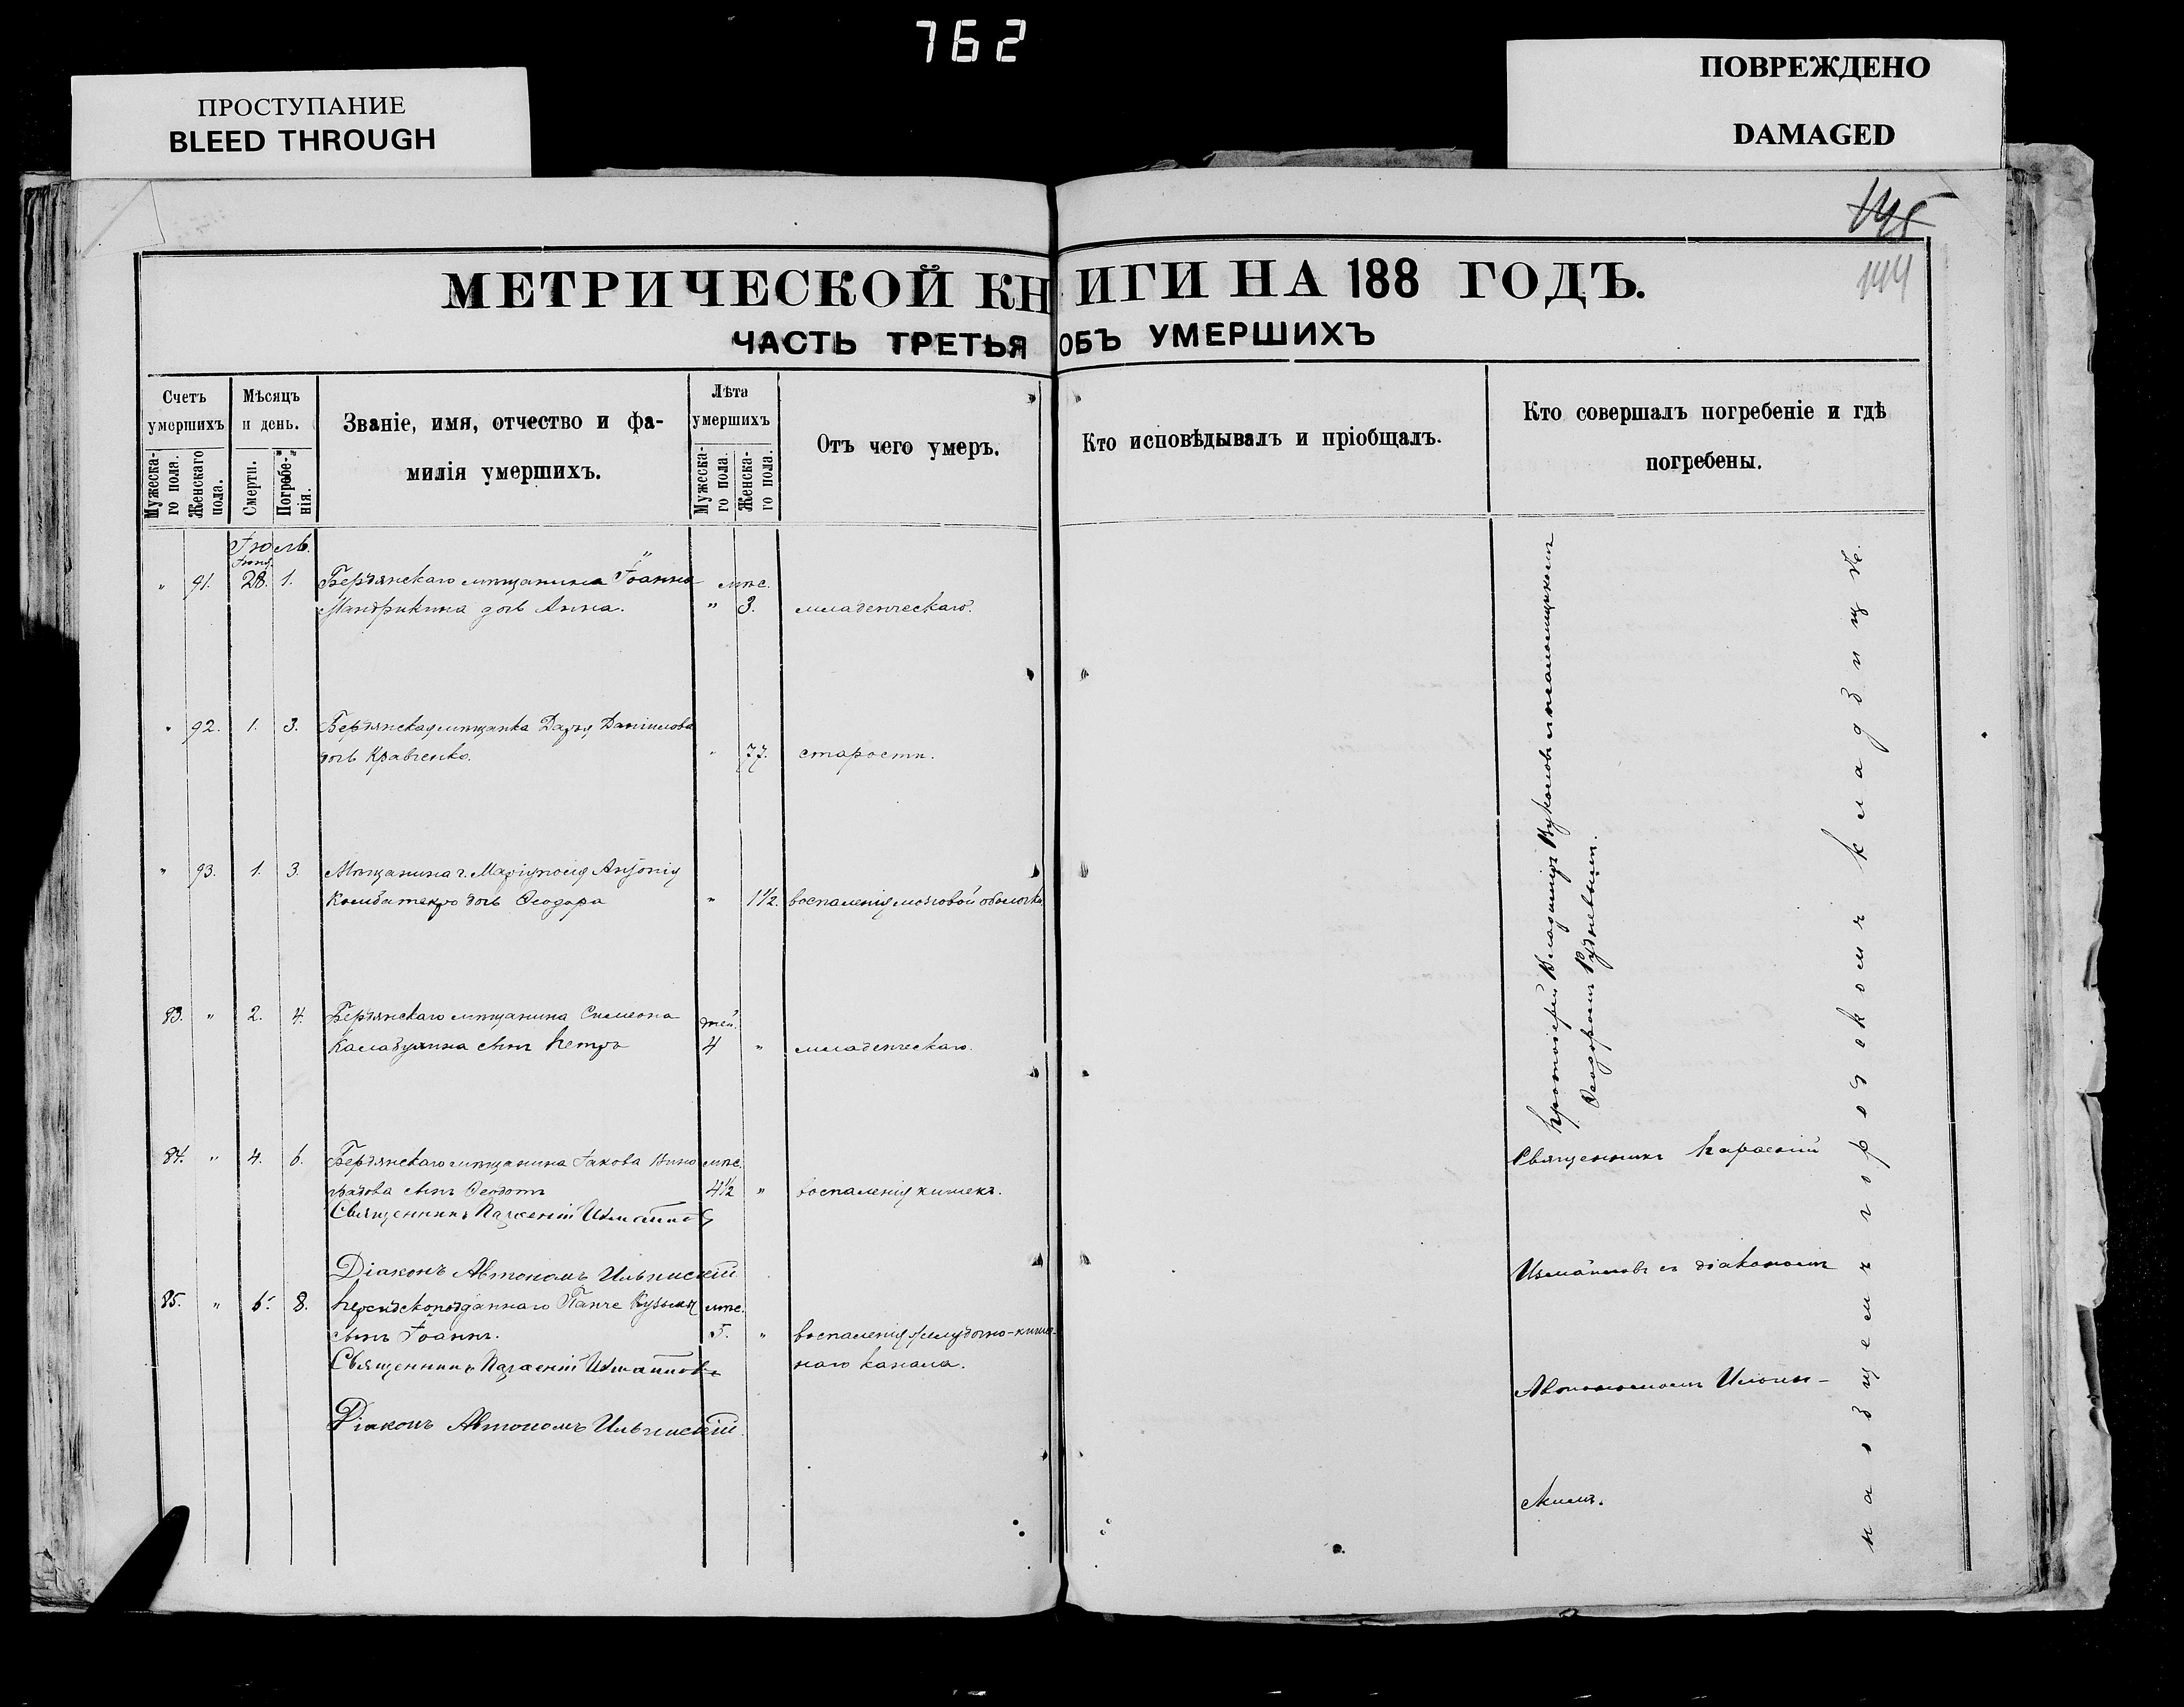 762
ПРОСТУПАНИЕ
BLEED THROUGH
ПОВРЕЖДЕНО
DAMAGED
145
144
МЕТРИЧЕСКОЙ КНИГИ НА 188 ГОДЪ.
ЧАСТЬ ТРЕТЬЯ ОБЪ УМЕРШИХЪ
Счетъ умершихъ
Мужеска-го пола.
Женскаго пола.
Мѣсяцъ и день.
Смерти.
Погребе-нія.
Званіе, имя, отчество и фа-
милія умершихъ.
Лѣта умершихъ
Мужеска-го пола.
Женска-го пола.
Отъ чего умеръ.
Кто исповѣдывалъ и пріобщалъ.
Кто совершалъ погребеніе и гдѣ
погребены.
Іюль.
Іюня
" 91. 28. 1. Бердянскаго мѣщанина Іоанна мѣс.
Мандрикина дочь Анна. " 3. младенческаго.
" 92. 1. 3. Бердянская мѣщанка Дарья Даніилова
дочь Кравченко. " 77. старости.
" 93. 1. 3. Мѣщанина г. Маріуполя
дочь Ѳеодора " 1 1/2. воспаленія мозговой оболочки
83. " 2. 4. Бердянскаго мѣщанина Симеона дней.
сынъ Петръ 4 " младенческаго.
84. " 4. 6. Бердянскаго мѣщанина Іакова Вино мѣс.
градова сынъ Ѳеодотъ 4 1/2 " воспаленія кишекъ.
Священникъ Парѳеній Измаиловъ
Діаконъ Автономъ Ильинскій
85. " 6. 8. Персидскоподданнаго Кузьмы мѣс.
сынъ Іоаннъ. 5. " воспаленія желудочно-кишеч-
наго канала.
Священникъ Парѳеній Измаиловъ
Діаконъ Автономъ Ильинскій.
Протоіерей Владиміръ Вуколовъ съ псаломщикомъ
Ѳеодоромъ Рудневымъ.
Священникъ Парѳеній
Измаиловъ съ діакономъ
Автономомъ Ильин-
скимъ.
на общемъ городскомъ кладбищѣ.